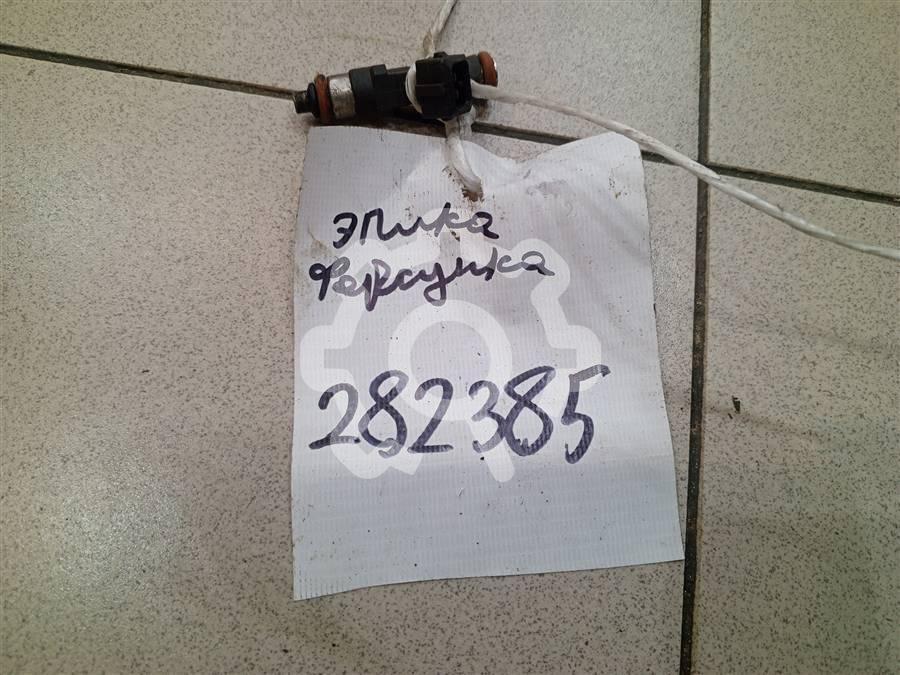 Эпика
Форсунка
282385